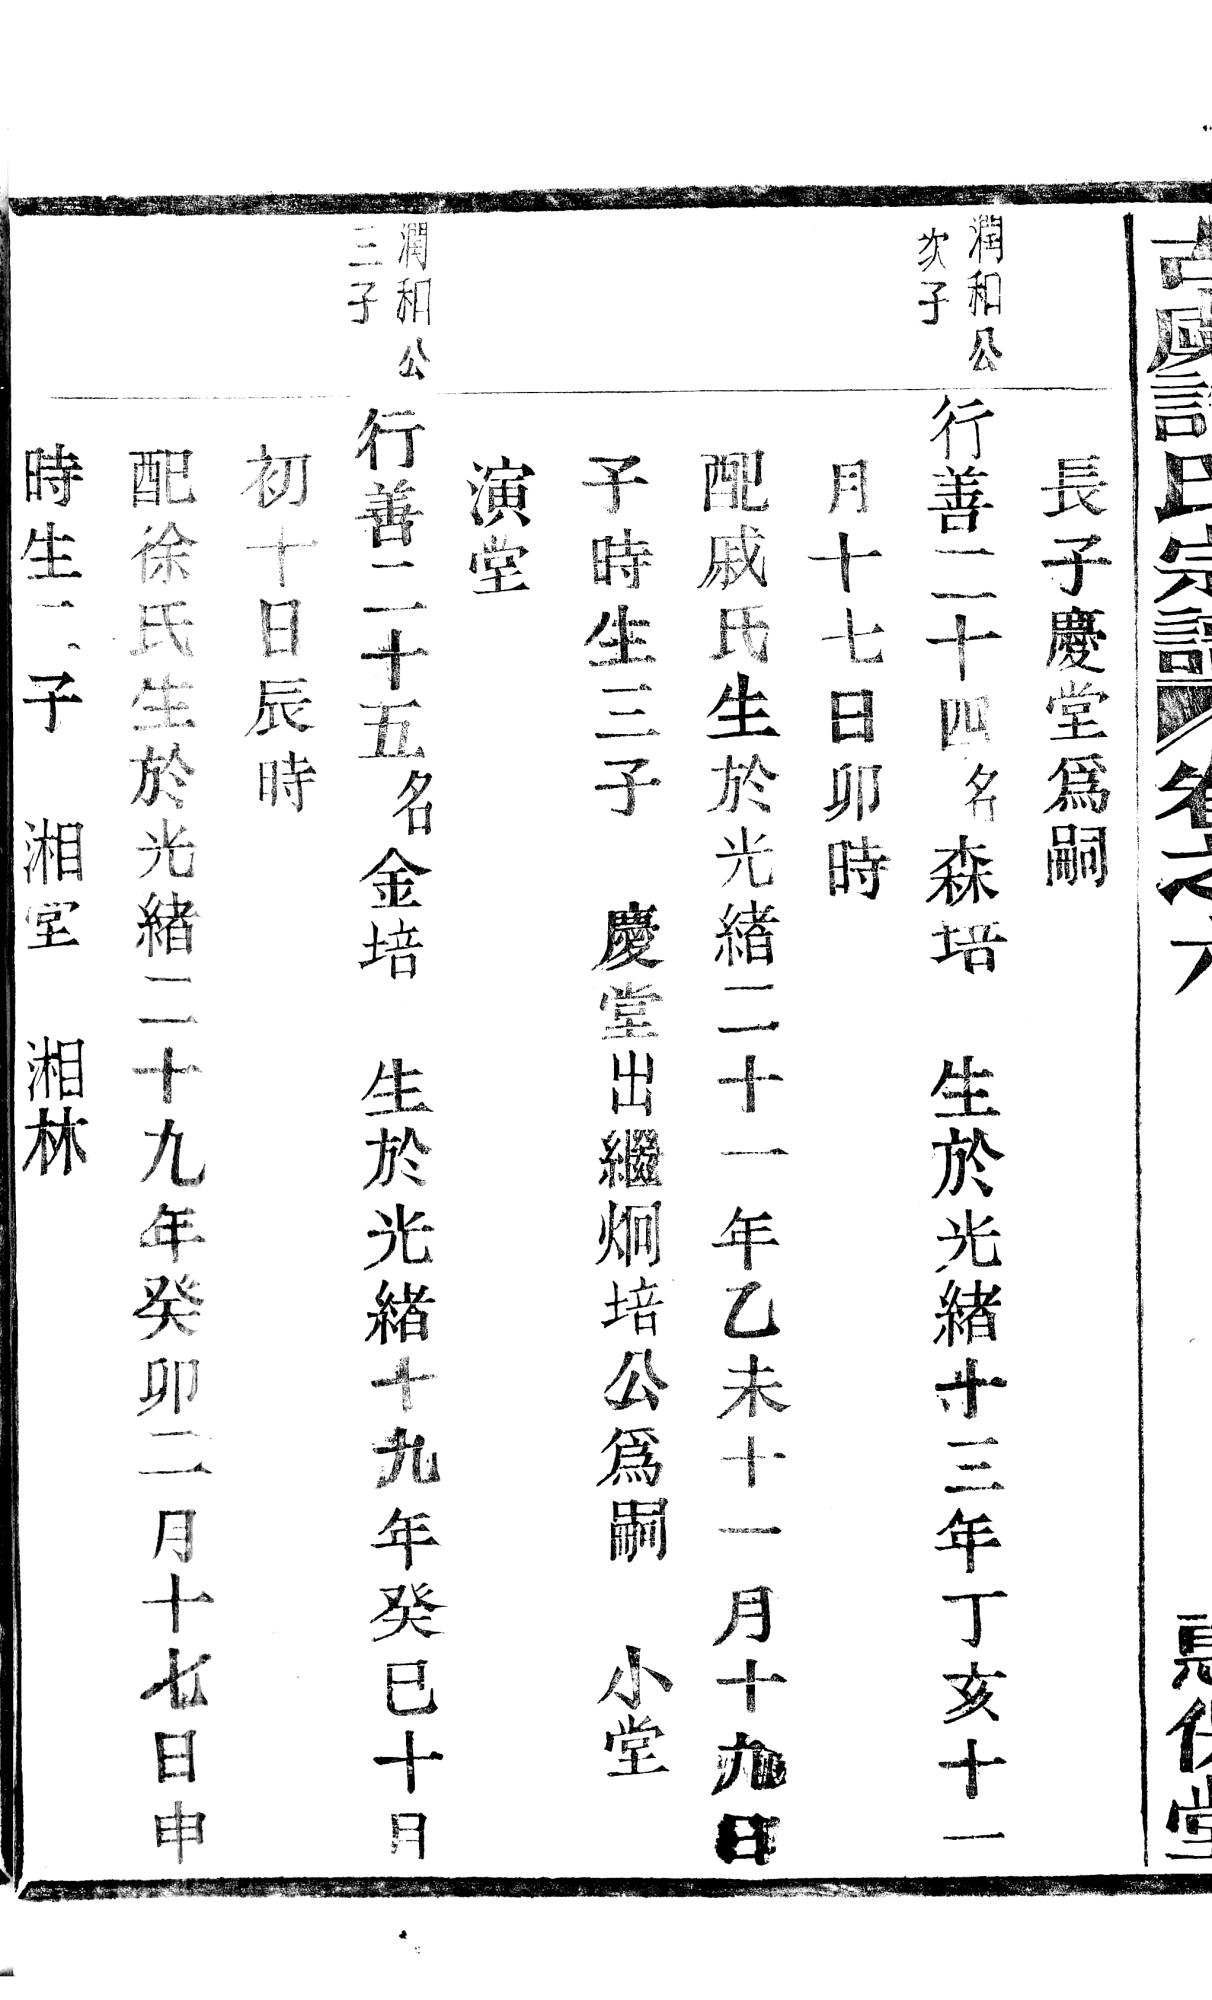 氏宗譜 卷之六
堂
長子慶堂爲嗣
潤和公
次子
行善二十四名森培 生於光緒十三年丁亥十一
月十七日卯時
配戚氏生於光緒二十一年乙未十一月十九日
子時生三子 慶堂出繼炯培公爲嗣 小堂
演堂
潤和公
三子
行善二十五名金培 生於光緒十九年癸巳十月
初十日辰時
配徐氏生於光緒二十九年癸卯二月十七日申
時生二子 湘堂 湘林